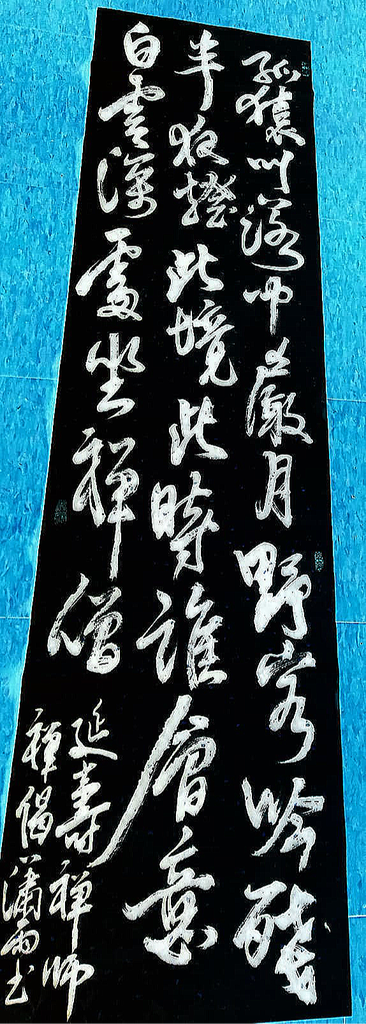 孤猿叫落中巖月野客吟殘
半夜燈此境此時誰會意
白雲深處坐禪僧
延壽禪師
禪偈瀟雨书